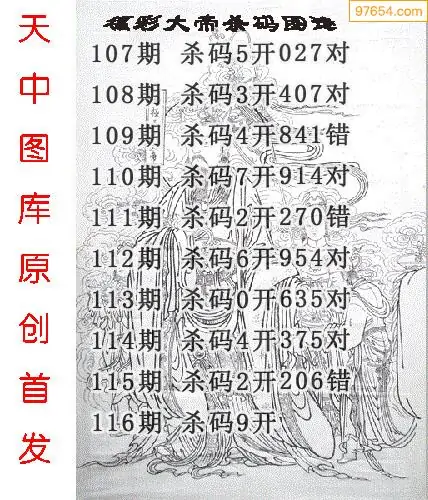 97654.com
彩大帝杀码图
天中图库原创首发
107期 杀码5开027对
108期 杀码3开407对
109期 杀码4开841错
110期 杀码7开914对
111期 杀码2开270错
112期 杀码6开954对
113期 杀码0开635对
114期 杀码4开375对
115期 杀码2开206错
116期 杀码9开